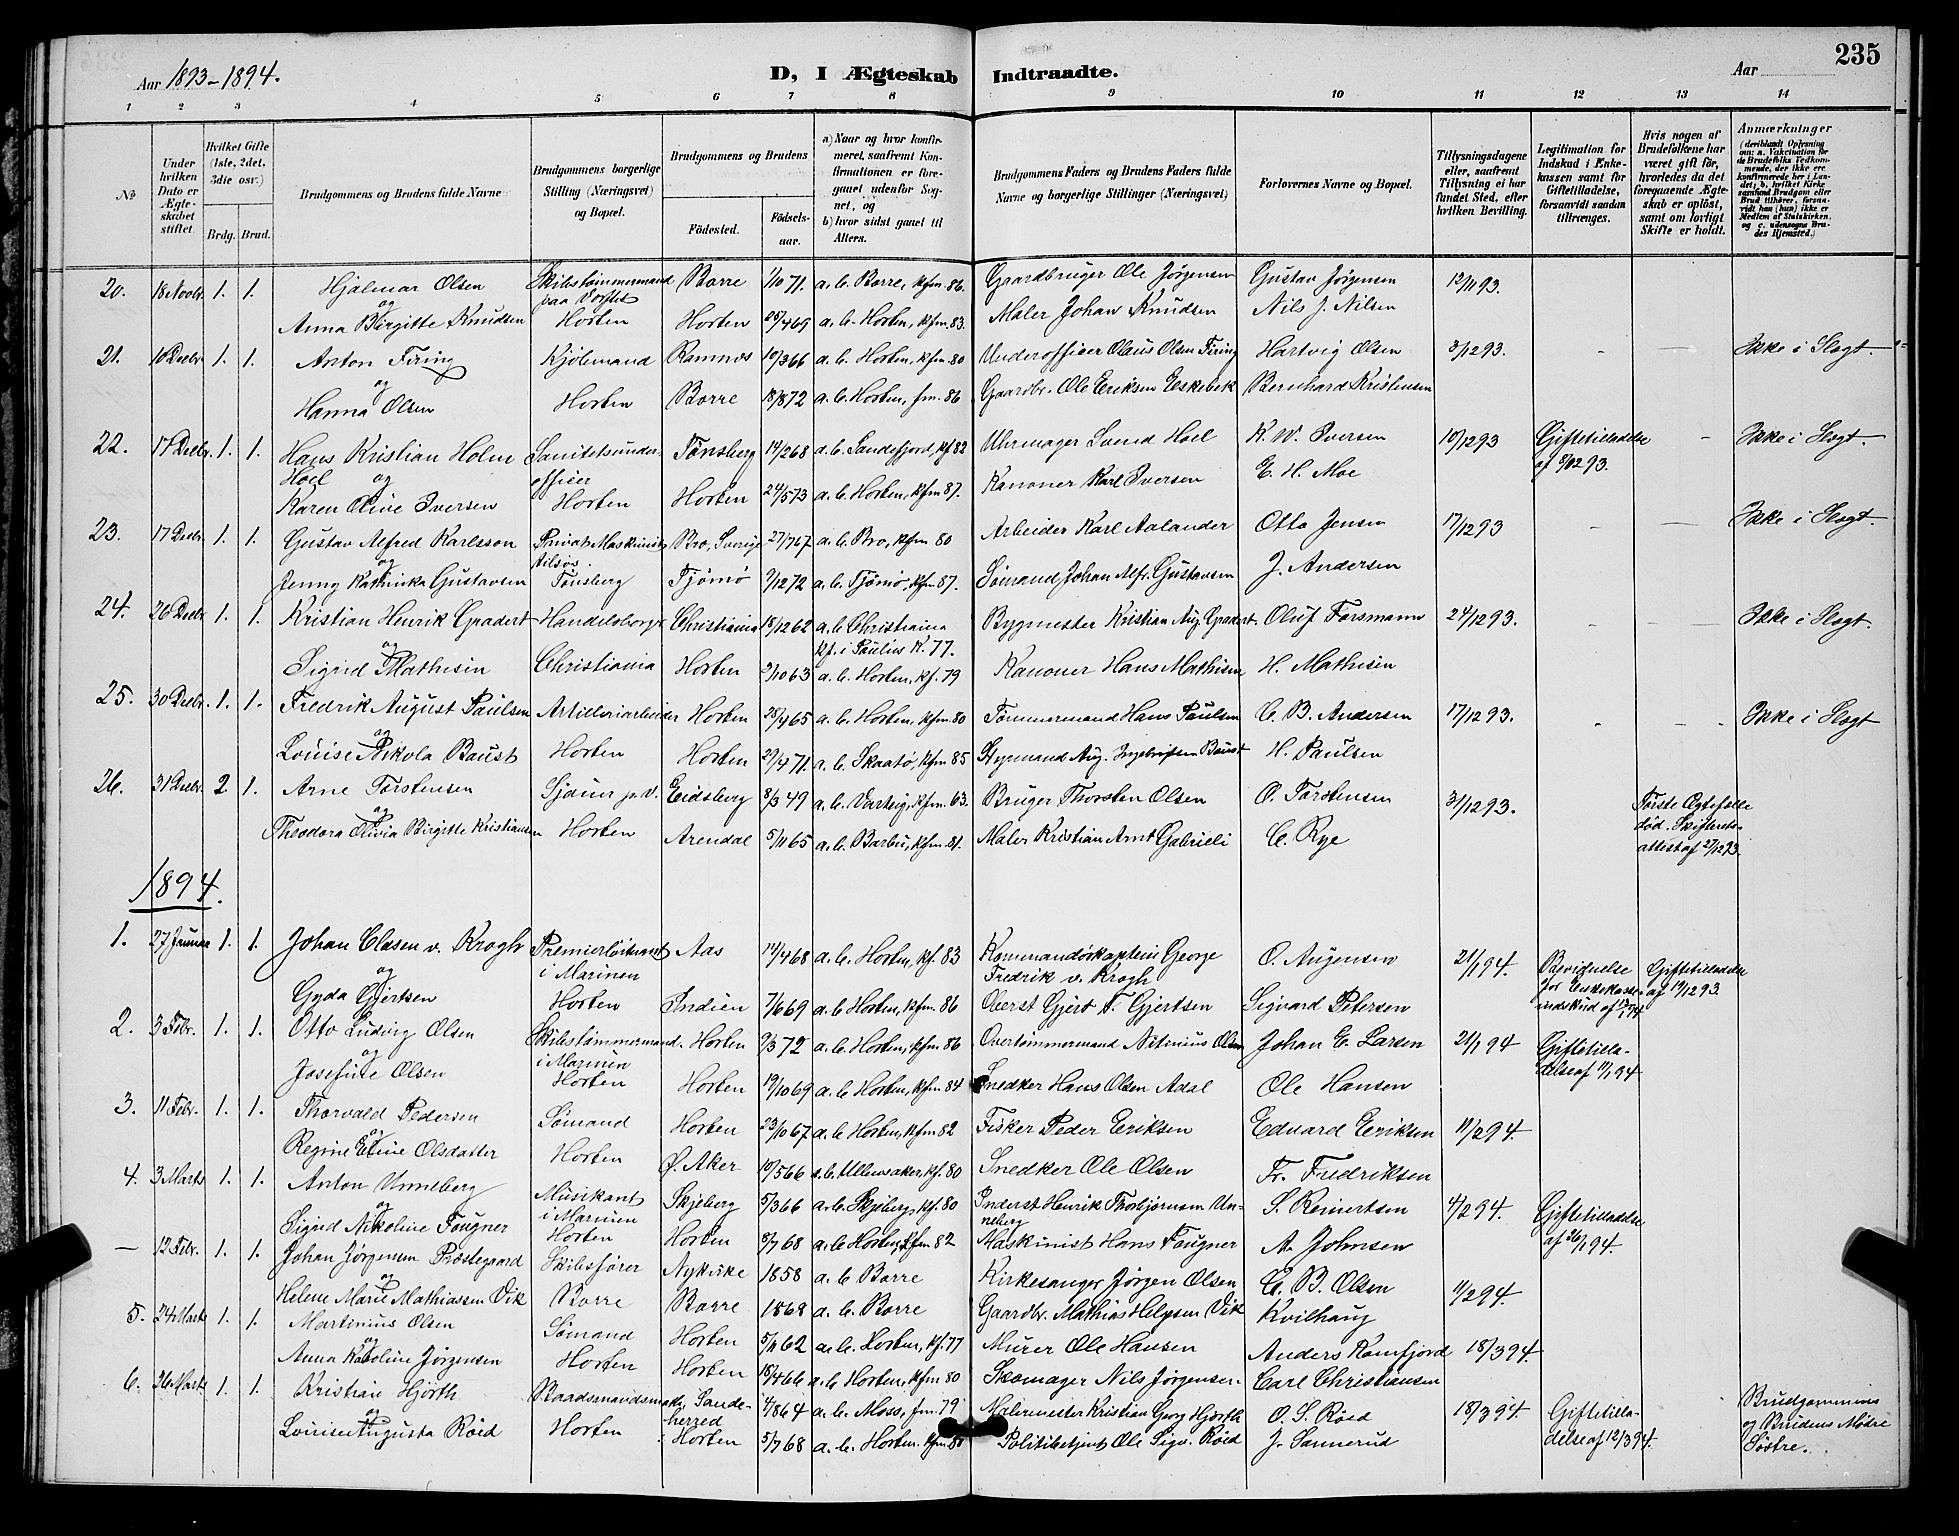 Aar 1893-1894.
D, I Ægteskab Indtraadte.
Aar
235
1 2 3 4 5 6 7 8 9 10 11 12 13 14
No
Under hvilken Dato er Ægteskabet stiftet.
Hvilket Gifte (1ste, 2det, 3die osv.)
Brdg. Brud.
Brudgommens og Brudens fulde Navne
Brudgommens borgerlige Stilling (Næringsvei) og Bopæl.
Brudgommens og Brudens
Fødested.
Fødselsaar.
a) Naar og hvor konfirmeret, saafremt Konfirmationen er foregaaet udenfor Sognet, og
b) hvor sidst gaaet til Alters.
Brudgommens Faders og Brudens Faders fulde Navne og borgerlige Stillinger (Næringsvei)
Forlovernes Navne og Bopæl.
Tillysningsdagene eller, saafremt Tillysning ei har fundet Sted, efter hvilken Bevilling.
Legitimation for Indskud i Enkekassen samt for Giftetilladelse, forsaavidt saadan tiltrænges.
Hvis nogen af Brudefolkene har været gift før, hvorledes da det foregaaende Ægteskab er opløst, samt om lovligt Skifte er holdt.
Anmærkninger
(deriblandt Oplysning om: a. Vakcination for de Brudefolks Vedkommende, der ikke ere konfirmerede her i Landet; b. hvilket Kirkesamfund Brudgom eller Brud tilhører, forsaavidt han (hun) ikke er Medlem af Statskirken, og c. udensogns Brudes Hjemsted.)
20. 18 Novbr. 1. 1. Hjalmar Olsen Skibstømmermand paa Værftet Borre 1/10 71. a.b. Borre, kfm. 86. Gaardbruger Ole Jørgensen Gustav Jørgensen 12/11 93.
og
Anna Birgitte Knudsen Horten Horten 25/4 69 a.b. Horten, kfm. 83. Maler Johan Knudsen Nils J. Nilsen
21. 10 Decbr. 1. 1. Anton Firing Kjølemand Ramnes 10/3 66 a.b. Horten, kfm. 80 Underofficer Olaus Olsen Firing Hartvig Olsen 3/12 93. - - Ikke i Slægt.
og
Hanna Olsen Horten Borre 18/8 72 a.b. Horten, fm. 86 Gaardbr. Ole Eriksen Eskebek Bernhard Kristensen
22. 17 Decbr. 1. 1. Hans Kristian Holm Hoel Sanitetsunderofficer Tønsberg 14/2 68 a.b. Sandefjord, kf. 82 Uhrmager Svend Hoel K. W. Iversen 10/12 93 Giftetilladelse af 8/12 93. - Ikke i Slægt.
og
Karen Oline Iversen Horten Horten 24/5 73 a.b. Horten, kfm. 87. Kanoner Karl Iversen E. H. Moe
23. 17 Decbr. 1. 1. Gustav Alfred Karlsson Privat Maskinist Bro, Sverige 27/7 67 a.b. Bro, kfm 80 Arbeider Karl Aalander Otto Jensen 17/12 93 - - Ikke i Slægt.
og
Jenny Katinka Gustavsen Tønsberg Tjømø 9/12 72 a.b. Tjømø, kfm. 87. Sømand Johan Alfr. Gustavsen J. Andersen
24. 26 Decbr. 1. 1. Kristian Henrik Gradert Handelsborger Christiania 18/12 62 a.b. Christiania kf. i Paulus K. 77. Bygmester Kristian Aug. Gradert Oluf Forsmann 24/12 93. - - Ikke i Slægt.
og
Sigrid Mathisen Christiania Horten 2/10 63 a.b. Horten, kf. 79 Kanoner Hans Mathisen H. Mathisen
25. 30 Decbr. 1. 1. Fredrik August Paulsen Artilleriarbeider Horten 28/4 65 a.b. Horten, kfm. 80 Tømmermand Hans Paulsen C. B. Andersen 17/12 93. - - Ikke i Slægt
og
Louise Nikola Baust Horten Horten 29/4 71. a.b. Skaatø, kfm. 85 Styrmand Aug. Ingebretsen Baust H. Paulsen
26. 31 Decbr. 2 1. Arne Torstensen Sjauer p. V. Eidsberg 8/3 49 a.b. Varteig, kfm. 63. Bruger Thorsten Olsen O. Torstensen 31/12 93. Første Ægtefælle død. Skifterets-attest af 27/12 93.
og
Theodora Olivia Birgitte Kristiansen Horten Arendal 5/11 65 a.b. Barbu, kfm. 81. Maler Kristian Arnt Gabrieli C. Rye
1894.
1. 27 Januar 1. 1. Johan Clasen v. Krogh Premierløitnant i Marinen Aas 14/4 68 a.b. Horten, kf. 83 Kommandørkaptein George Fredrik v. Krogh O. Augensen 21/1 94. Bevidnelse for Enkekasseindskud af 17/1 94 Giftetilladelse af 19/12 93.
og
Gyda Gjertsen Horten Indien 7/6 69 a.b. Horten, kfm. 86 Oberst Gjert F. Gjertsen Sigvard Petersen
2. 3 Febr. 1. 1. Otto Ludvig Olsen Skibstømmermand i Marinen Horten 9/3 72 a.b. Horten, kfm. 86 Overtømmermand Nitinius Olsen Johan E. Larsen 21/1 94 Giftetilladelse af 11/1 94
og
Josefine Olsen Horten Horten 19/10 69 a.b. Horten, kfm. 84 Snedker Hans Olsen Adal Ole Hansen
3. 11 Febr. 1. 1. Thorvald Pedersen Sømand Horten 23/10 67 a.b. Horten, kfm 82 Fisker Peder Eriksen Edvard Eriksen 11/2 94.
og
Regine Eline Olsdatter Horten Ø. Aker 10/5 66 a.b. Ullensaker, kf. 80 Snedker Ole Olsen Fr. Fredriksen
4. 3 Marts 1. 1. Anton Unneberg Musikant i Marinen Skjeberg 5/3 66 a.b. Skjeberg, kf. 80 Inderst Henrik Thorbjørnsen Unneberg S. Reinertsen 4/2 94. Giftetilladelse af 26/1 94.
og
Sigrid Nikoline Fougner Horten Horten 8/7 68 a.b. Horten, kfm. 82 Maskinist Hans Fougner A. Johnsen
— 12 Febr. 1. 1. Johan Jørgensen Prestegaard Skibsfører Nykirke 1858 a.b. Borre Kirkesanger Jørgen Olsen C. B. Olsen 11/2 94.
og
Helene Marie Mathiassen Vik Borre Borre 1868 a.b. Borre Gaardbr. Mathias Helgesen Vik Kvilhaug
5. 24 Marts 1. 1. Martinius Olsen Sømand Horten 5/11 62 a.b. Horten, kf. 77 Murer Ole Hansen Anders Ramfjord 18/3 94.
og
Anna Karoline Jørgensen Horten Horten 18/4 66 a.b. Horten, kfm. 80 Skomager Nils Jørgensen Carl Christiansen
6. 26 Marts 1. 1. Kristian Hjorth Baadsmandsmath Sandeherred 4/8 64 a.b. Moss, fm. 79 Malermester Kristian Georg Hjorth O. S. Røed 18/3 94. Giftetilladelse af 12/3 94. Brudgommens og Brudens Mødre Søstre.
og
Louise Augusta Røed Horten Horten 5/7 68 a.b. Horten. kfm. 8 Politibetjent Ole Sigv. Røed J. Sannerud